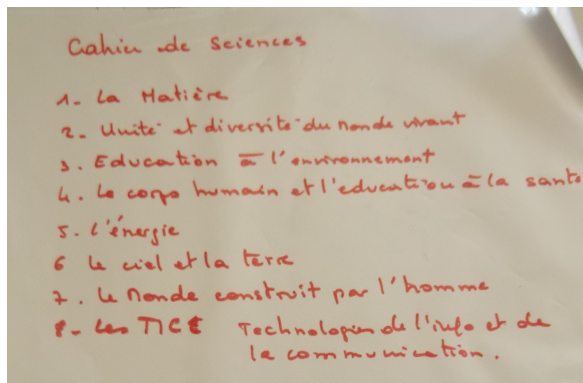 Cahier de Sciences
1- La Matière
2- Unité et diversité du monde vivant
3. Education à l'environnement
4. Le corps humain et l'education à la santé
5. L'énergie
6 Le ciel et la terre
7. Le Monde construit par l'homme
8- Les TICE Technologies de l'info et de
la communication.